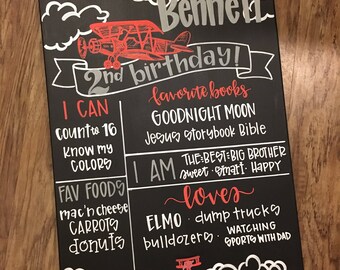 Bennett
2nd birthday!
I CAN
count to 16
know my
COLORS
FAV FOODS
mac'n cheese
CARROTS
donuts
favorite books
GOODNIGHT MOON
Jesus Storybook Bible
I AM THE:BEST:BIG BROTHER
sweet · smart · Happy
loves
ELMO · dump trucks
bulldozers · WATCHING
SPORTS WITH DAD